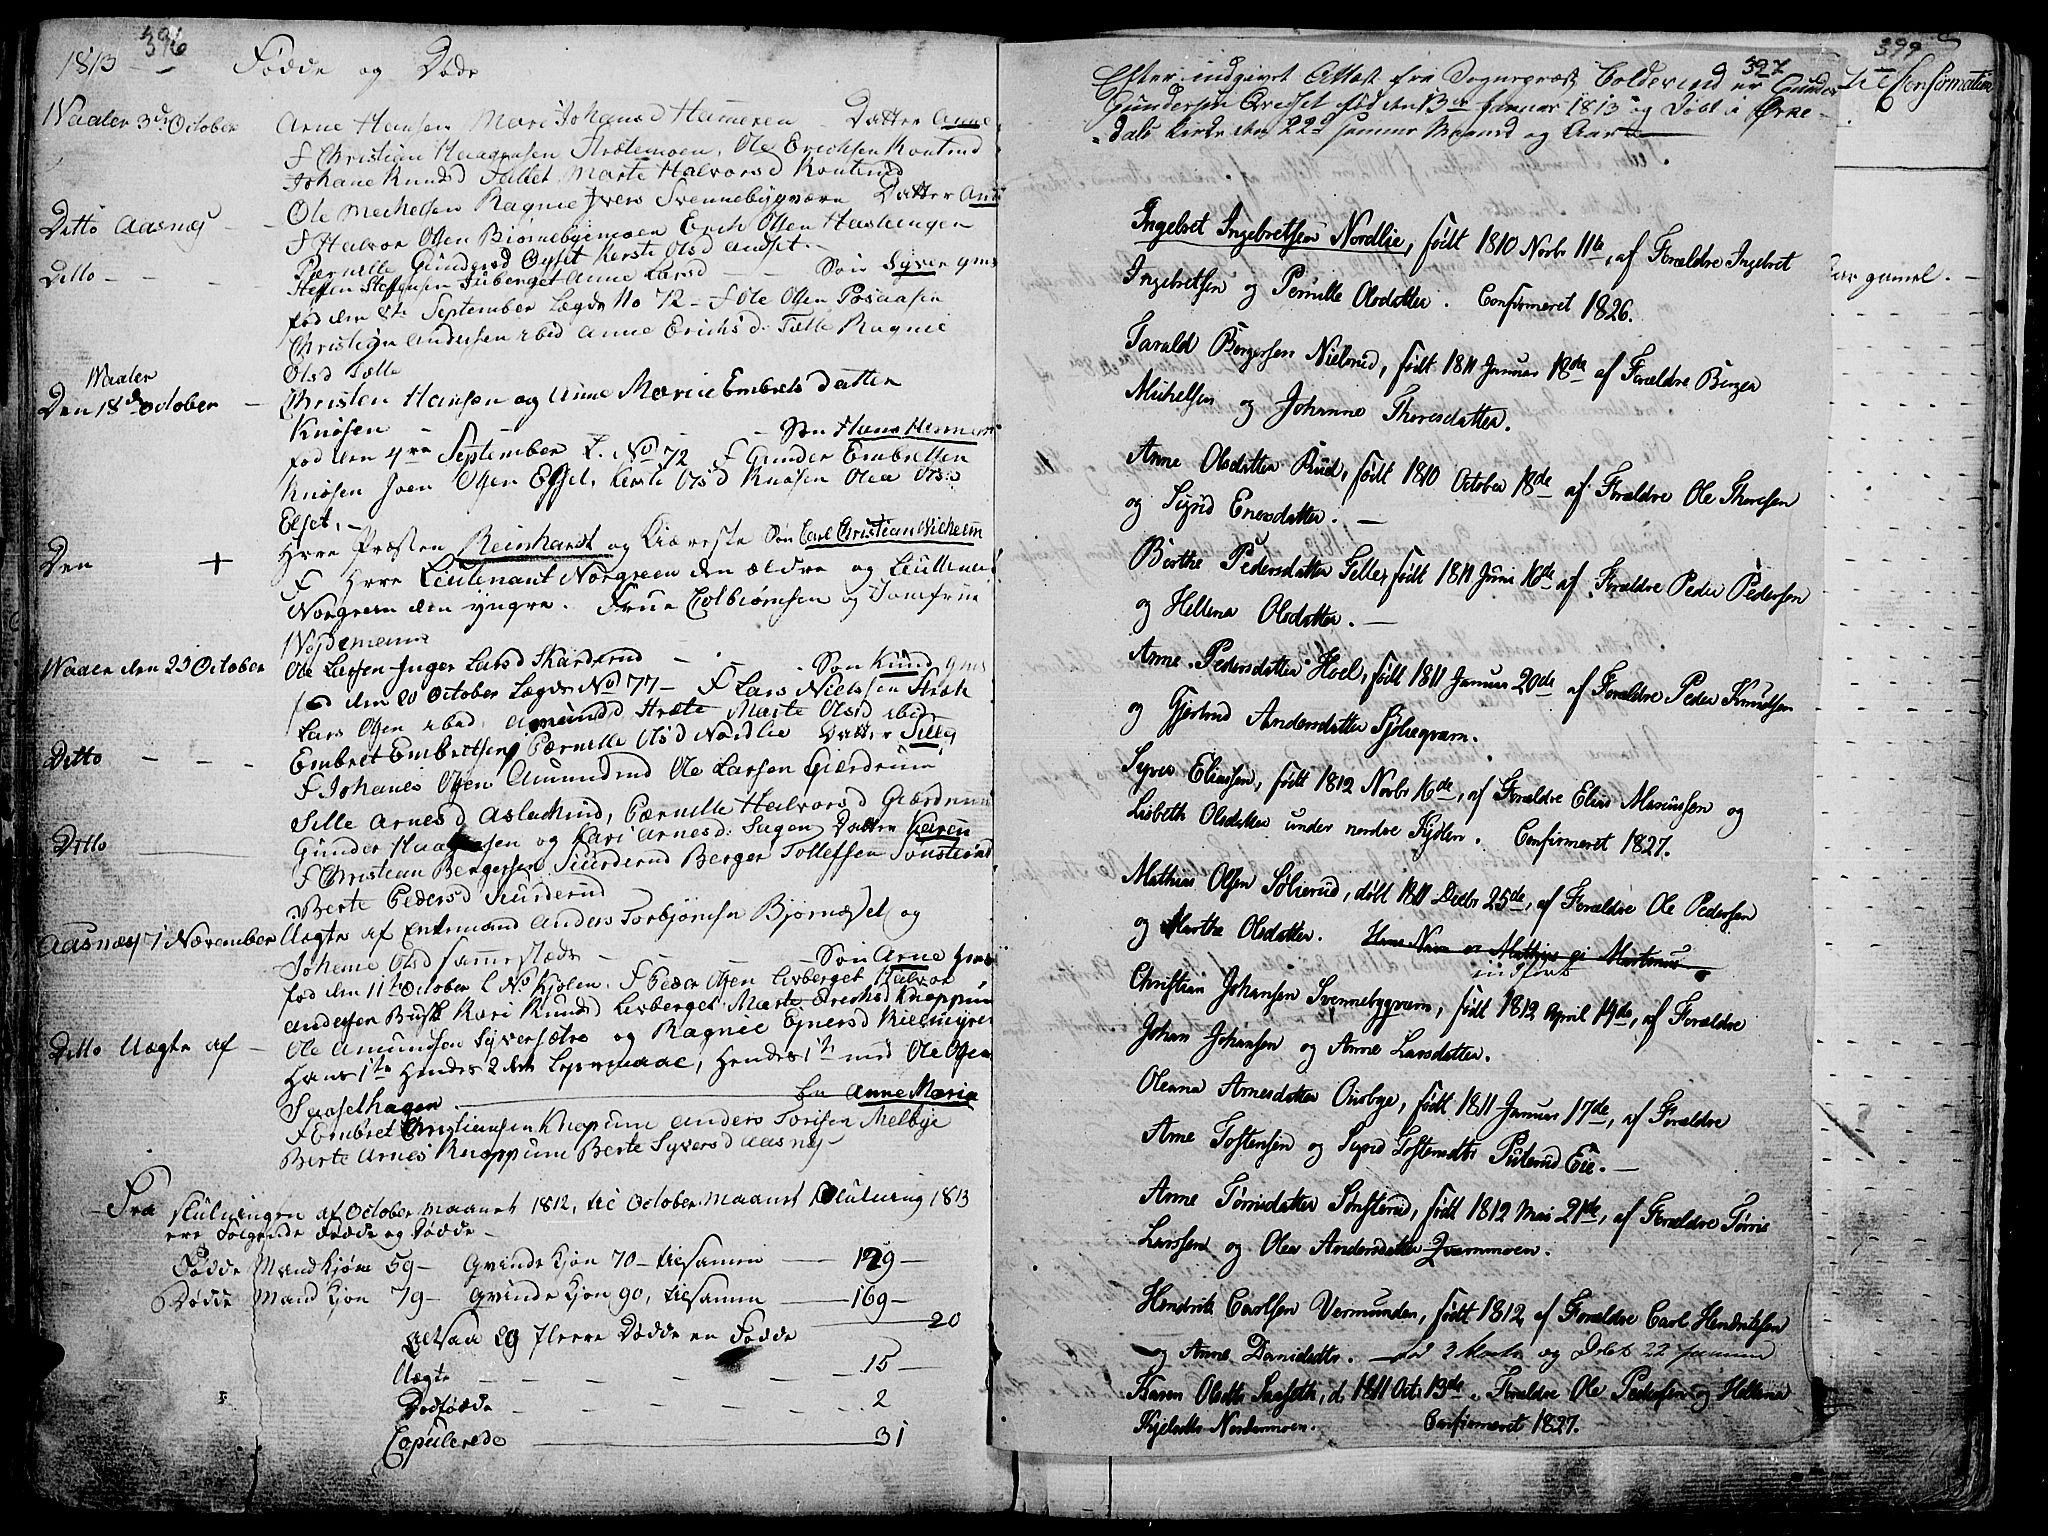 396
1813 Fødde og Døde
Waaler 3de October Arne Hansen Mari Johansd Hameren Datter Anne
F Christian Haagensen Strætemoen, Ole Erichsen Kontrud
Johane Knudsd Tællet Marte Halvorsd Kontrud
Ditto Aasnes Ole Mechelsen Ragnie Ivers Svennebygværn Datter
F Halvor Olsen Biørnebyemoen Erich Olsen Haslengen
Pærnelle Gundersd Kerste Olsd
Ditto Steffen Steffensen Anne Larsd Søn Syver
fød den 8de September Lægds No 72 F Ole Olsen
Christian Andersen ibid Anne Erichsd Tælle Ragnie
Olsd Tælle
Waaler
Den 18de October Christen Hansen og Anne Marie Embrets datter
Knøsen Søn Hans
fød den September L. No 72 F Gunder Embretsen
Knøsen Joen Olsen Elset, Kerste Olsd Knøsen Olea Olsd
Elset
Den + Herre Præsten Reinhardt og Kiæreste Søn Carl Christian Wilhelm
F Herre Lieutenant Norgreen den ældre og Lieutenant
Norgreen den yngre. Frue Colbiørnsen og Jomfrue
Waaler den 23 October Ole Larsen Inger Larsd Skårderud Søn Knud
fød den 20 October Lægds No 77 F Lars Nielssen Stræte
Lars Olsen ibid. Amundsd Stræte Marte Olsd ibid
Ditto Embret Embretsen Pærnelle Olsd Nordlie Datter Sille
F Johanes Olsen Amundrud Ole Larsen Gierdrum
Sille Arnesd Aslachrud, Pærnelle Halvorsd Gierdrum
Ditto Gunder og Kari Arnesd Datter Karen
F Christian Bergersen Berger Tollefsen Sønsterud
Berte Pedersd
Aasnes 7 November Uægte af Enkemand Anders Torbjørnsen Bjørneset og
Johane Olsd sammestæds Søn Arne
fød den 11te October L No Kjølen. F Peder Olsen Lisberget Halvor
Andersen Busk Kari Knudsd Lisberget Marte Erichsd Knappum
Ditto Uægte af Ole Amundsen Syversætre og Ragnie Ejnersd
Hans 1te Hendes 2den Lejermaal, Hendes 1te med Ole Olsen
Saaselhagen En Anne Maria
F Embret Christiansen Knapum Anders Torisen Melbye
Berte Arnes Knappum Berte Syversd Aasnes
Fra slutningen af October maanet 1812, til October Maanets Slutning 1813
ere Følgende Fødde og Dødde
Fødde Mandkjøn 59 Qvindekjøn 70 tilsamen 129
Dødde Mandkjøn 79 Qvindekjøn 90, tilsamen 169
Altsaa flere Dødde en Fødde 20
Uægte 15
Dødfødde 2
Copulerede 31
397
Efter indgivet Attest fra Sognepræst Colderin er Gunder
Gundersen født den 13de Januar 1813 og Døbt i Orke-
dals Kirke den 22d samme Maaned og Aar
Ingebret Ingebretsen Nordlie, født 1810 Novbr 11te, af Forældre Ingebret
Ingebretsen og Pernille Olsdatter. Confirmeret 1826.
Tarald Bergersen Nielsrud, født 1811 Januar 18de af Forældre Berger
Michelsen og Johanne Thoresdatter.
Anne Olsdatter Rud, født 1810 October 18de af Forældre Ole Thoresen
og Sigrid Enersdatter.
Berthe Pedersdatter Gille, født 1811 Juni 10de af Forældre Peder Pedersen
og Hellena Olsdatter.
Anne Pedersdatter Hoel, født 1811 Januar 20de af Forældre Peder Knudsen
og Gjertrud Andersdatter Sjøliegværn.
Syver Eliassen, født 1812 Novbr 16de, af Forældre Elias Mariussen og
Lisbeth Olsdatter under nordre Kjølen. Confirmeret 1827.
Mathias Olsen Sølierud, født 1811 Decbr 25de, af Forældre Ole Pedersen
og Marthe Olsdatter. Hans Navn er Mathias ei Martinus
indført
Christian Johansen Svennebygværn, født 1812 April 19de, af Forældre
Johan Johansen og Anne Larsdatter.
Oleana Arnesdatter Ousbye, født 1811 Januar 17de, af Forældre
Arne Tostensen og Sigrid Tostensdtr Puterud Eie.
Anne Tørrisdatter Sønsterud, født 1812 Mai 21de, af Forældre Tørris
Larssen og Olea Andersdatter Qvernmoen.
Hendrik Carlsen Vermunden, født 1812, af Forældre Carl Hendriksen
og Anne Danielsdtr. fød 3 Marts og Døbt 22 samme
Karen Olsdtr Saaseth, d. 1811 Octr 13de. Forældre Ole Pedersen og Hellena
Kjelsdtr Nordermoen. Confirmeret 1827.
399
til Confirmation
Aar gamel.